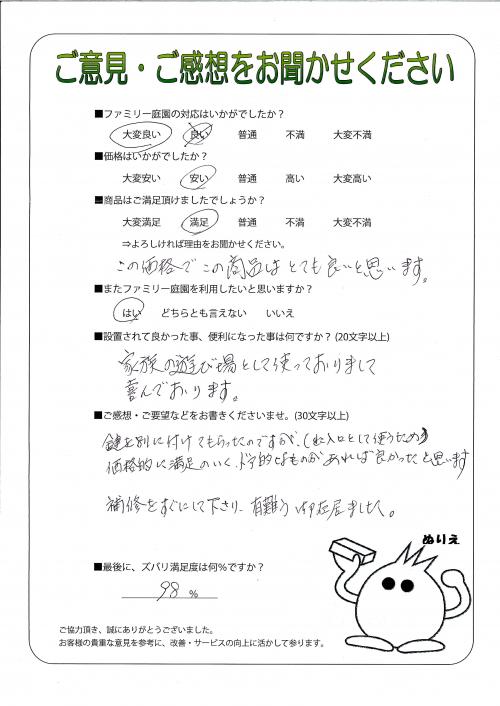 ご意見・ご感想をお聞かせください
■ファミリー庭園の対応はいかがでしたか？
大変良い 良い 普通 不満 大変不満
■価格はいかがでしたか？
大変安い 安い 普通 高い 大変高い
■商品はご満足頂けましたでしょうか？
大変満足 満足 普通 不満 大変不満
⇒よろしければ理由をお聞かせください。
この価格でこの商品はとても良いと思います。
■またファミリー庭園を利用したいと思いますか？
はい どちらとも言えない いいえ
■設置されて良かった事、便利になった事は何ですか？(20文字以上)
家族の遊び場として使っておりまして
喜んでおります。
■ご感想・ご要望などをお書きくださいませ。(30文字以上)
鍵を別に付けてもらったのですが、(出入口として使うため)
価格的に満足のいく、ドア的なものがあれば良かったと思います
補修をすぐにして下さり、有難う御在居ました。
ぬりえ
■最後に、ズバリ満足度は何％ですか？
98 %
ご協力頂き、誠にありがとうございました。
お客様の貴重な意見を参考に、改善・サービスの向上に活かして参ります。